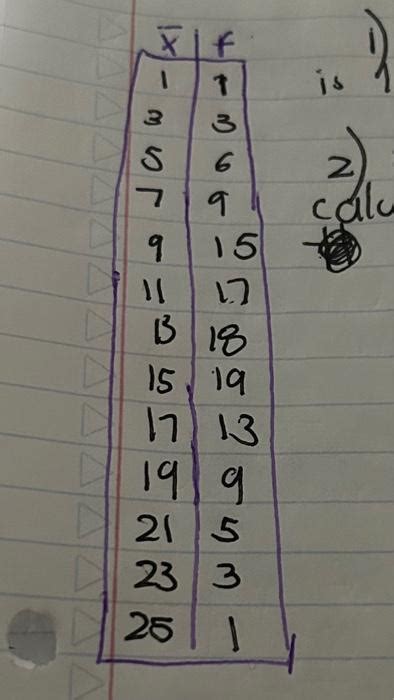 x̅ f
1 1
3 3
5 6
7 9
9 15
11 17
13 18
15 19
17 13
19 9
21 5
23 3
25 1
1)
is
2)
calc